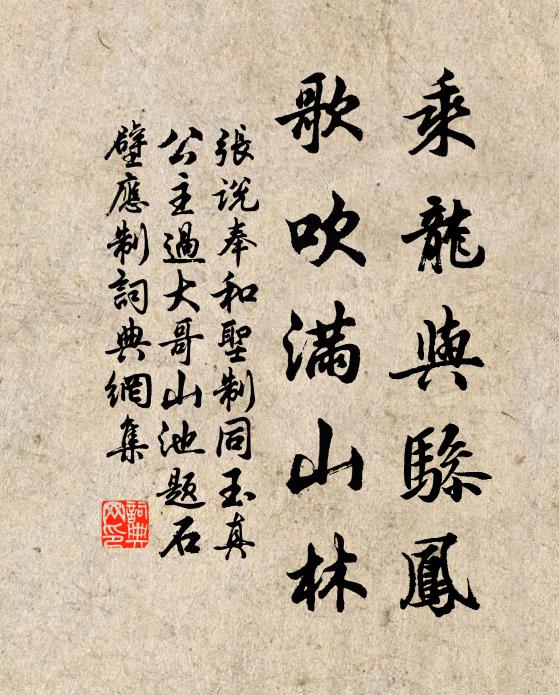 乘龍與驂鳳
歌吹滿山林
張說奉和聖制同玉真
公主過大哥山池題石
壁應制詞典網集
詞典網印